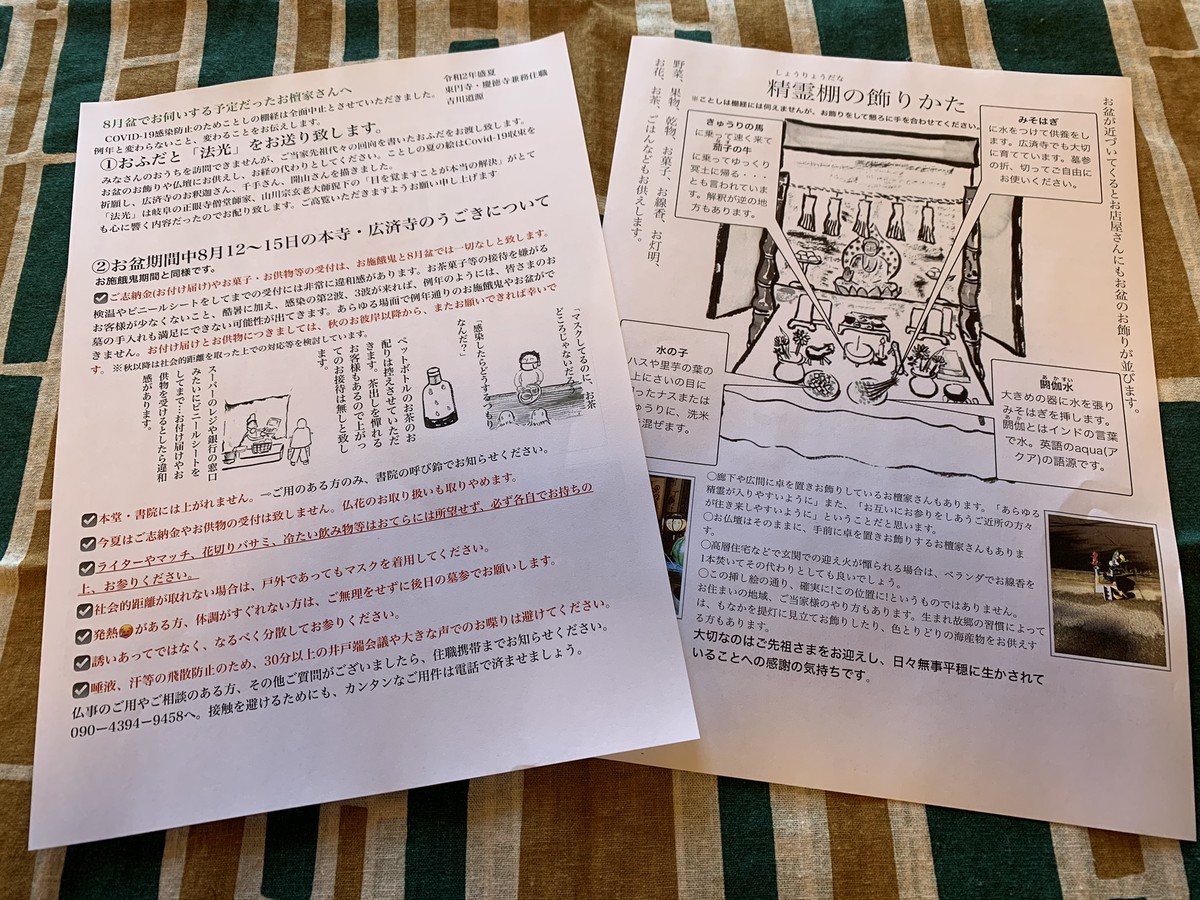 令和2年盛夏
東円寺・慶徳寺兼務住職
吉川道源
8月盆でお伺いする予定だったお檀家さんへ
COVID-19感染防止のためことしの棚経は全面中止とさせていただきました。
例年と変わらないこと、変わることをお伝えします。
①おふだと「法光」をお送り致します。
みなさんのおうちを訪問できませんが、ご当家先祖代々の回向を書いたおふだをお渡し致します。
お盆のお飾りや仏壇にお供えし、お経の代わりとしてください。ことしの夏の絵はCovid-19収束を
祈願し、広済寺のお釈迦さん、千手さん、開山さんを描きました。
「法光」は岐阜の正眼寺僧堂師家、山川宗玄老大師猊下の「目を覚ますことが本当の解決」がとて
も心に響く内容だったのでお配り致します。ご高覧いただきますようお願い申し上げます
②お盆期間中8月12〜15日の本寺・広済寺のうごきについて
お施餓鬼期間と同様です。
ご志納金(お付け届け)やお菓子・お供物等の受付は、お施餓鬼と8月盆では一切なしと致します。
検温やビニールシートをしてまでの受付には非常に違和感があります。お茶菓子等の接待を嫌がる
お客様が少なくないこと、酷暑に加え、感染の第2波、3波が来れば、例年のようには、皆さまのお
墓の手入れも満足にできない可能性が出てきます。あらゆる場面で例年通りのお施餓鬼やお盆がで
きません。お付け届けとお供物につきましては、秋のお彼岸以降から、またお願いできれば幸いで
す。※秋以降は社会的距離を取った上での対応等を検討しています。
「マスクしてるのに、お茶
どころじゃないだろ」
「感染したらどうするつもり
なんだ?」
ペットボトルのお茶のお
配りは控えさせていただ
きます。茶出しを憚れる
お客様もあるので上がっ
てのお接待は無しと致し
ます。
スーパーのレジや銀行の窓口
みたいにビニールシートを
してまで…お付け届けやお
供物を受けるとしたら違和
感があります。
本堂・書院には上がれません。→ご用のある方のみ、書院の呼び鈴でお知らせください。
今夏はご志納金やお供物の受付は致しません。仏花のお取り扱いも取りやめます。
ライターやマッチ、花切りバサミ、冷たい飲み物等はおてらには所望せず、必ず各自でお持ちの
上、お参りください。
社会的距離が取れない場合は、戸外であってもマスクを着用してください。
発熱がある方、体調がすぐれない方は、ご無理をせずに後日の墓参でお願いします。
誘いあってではなく、なるべく分散してお参りください。
唾液、汗等の飛散防止のため、30分以上の井戸端会議や大きな声でのお喋りは避けてください。
仏事のご用やご相談のある方、その他ご質問がございましたら、住職携帯までお知らせください。
090ー4394ー9458へ。接触を避けるためにも、カンタンなご用件は電話で済ませましょう。
しょうりょうだな
精霊棚の飾りかた
※ことしは棚経には伺えませんが、お飾りをして懇ろに手を合わせてください。
お盆が近づいてくるとお店屋さんにもお盆のお飾りが並びます。
野菜、果物、乾物、お菓子、お線香、お灯明、
お花、お茶、ごはんなどもお供えします。
きゅうりの馬
に乗って速く来て
茄子の牛
に乗ってゆっくり
冥土に帰る・・・
とも言われていま
す。解釈が逆の地
方もあります。
みそはぎ
に水をつけて供養をし
ます。広済寺でも大切
に育てています。墓参
の折、切ってご自由に
お使いください。
水の子
ハスや里芋の葉の
上にさいの目に
ったナスまたは
ゅうりに、洗米
を混ぜます。
あかすい
閼伽水
大きめの器に水を張り
みそはぎを挿します。
あか
閼伽とはインドの言葉
で水。英語のaqua(ア
クア)の語源です。
○廊下や広間に卓を置きお飾りしているお檀家さんもあります。「あらゆる
精霊が入りやすいように」また、「お互いにお参りをしあうご近所の方々
が往き来しやすいように」ということだと思います。
○お仏壇はそのままに、手前に卓を置きお飾りするお檀家さんもありま
す。
○高層住宅などで玄関での迎え火が憚られる場合は、ベランダでお線香を
1本焚いてその代わりとしても良いでしょう。
○この挿し絵の通り、確実に!この位置に!というものではありません。
お住まいの地域、ご当家様のやり方もあります。生まれ故郷の習慣によって
は、もなかを提灯に見立てお飾りしたり、色とりどりの海産物をお供えす
る方もあります。
大切なのはご先祖さまをお迎えし、日々無事平穏に生かされて
いることへの感謝の気持ちです。